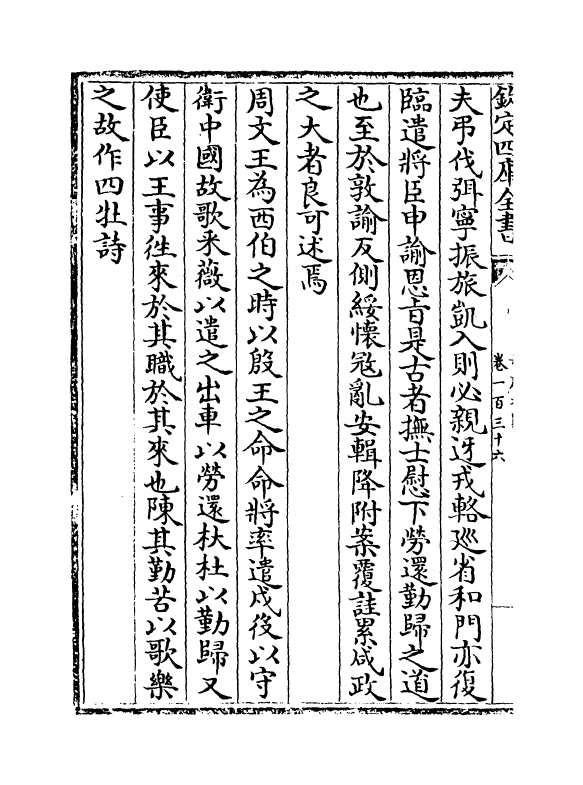 欽定四庫全書
卷一百三十六
夫弔伐弭寧振旅凱入則必親迓戎輅廵省和門亦復
臨遣將臣申諭恩旨是古者撫士慰下勞還勤歸之道
也至於敦諭反側綏懷冦亂安輯降附案覆詿累咸政
之大者良可述焉
周文王為西伯之時以殷王之命命將率遣戍役以守
衛中國故歌采薇以遣之出車以勞還杕杜以勤歸又
使臣以王事徃來於其職於其來也陳其勤苦以歌樂
之故作四牡詩